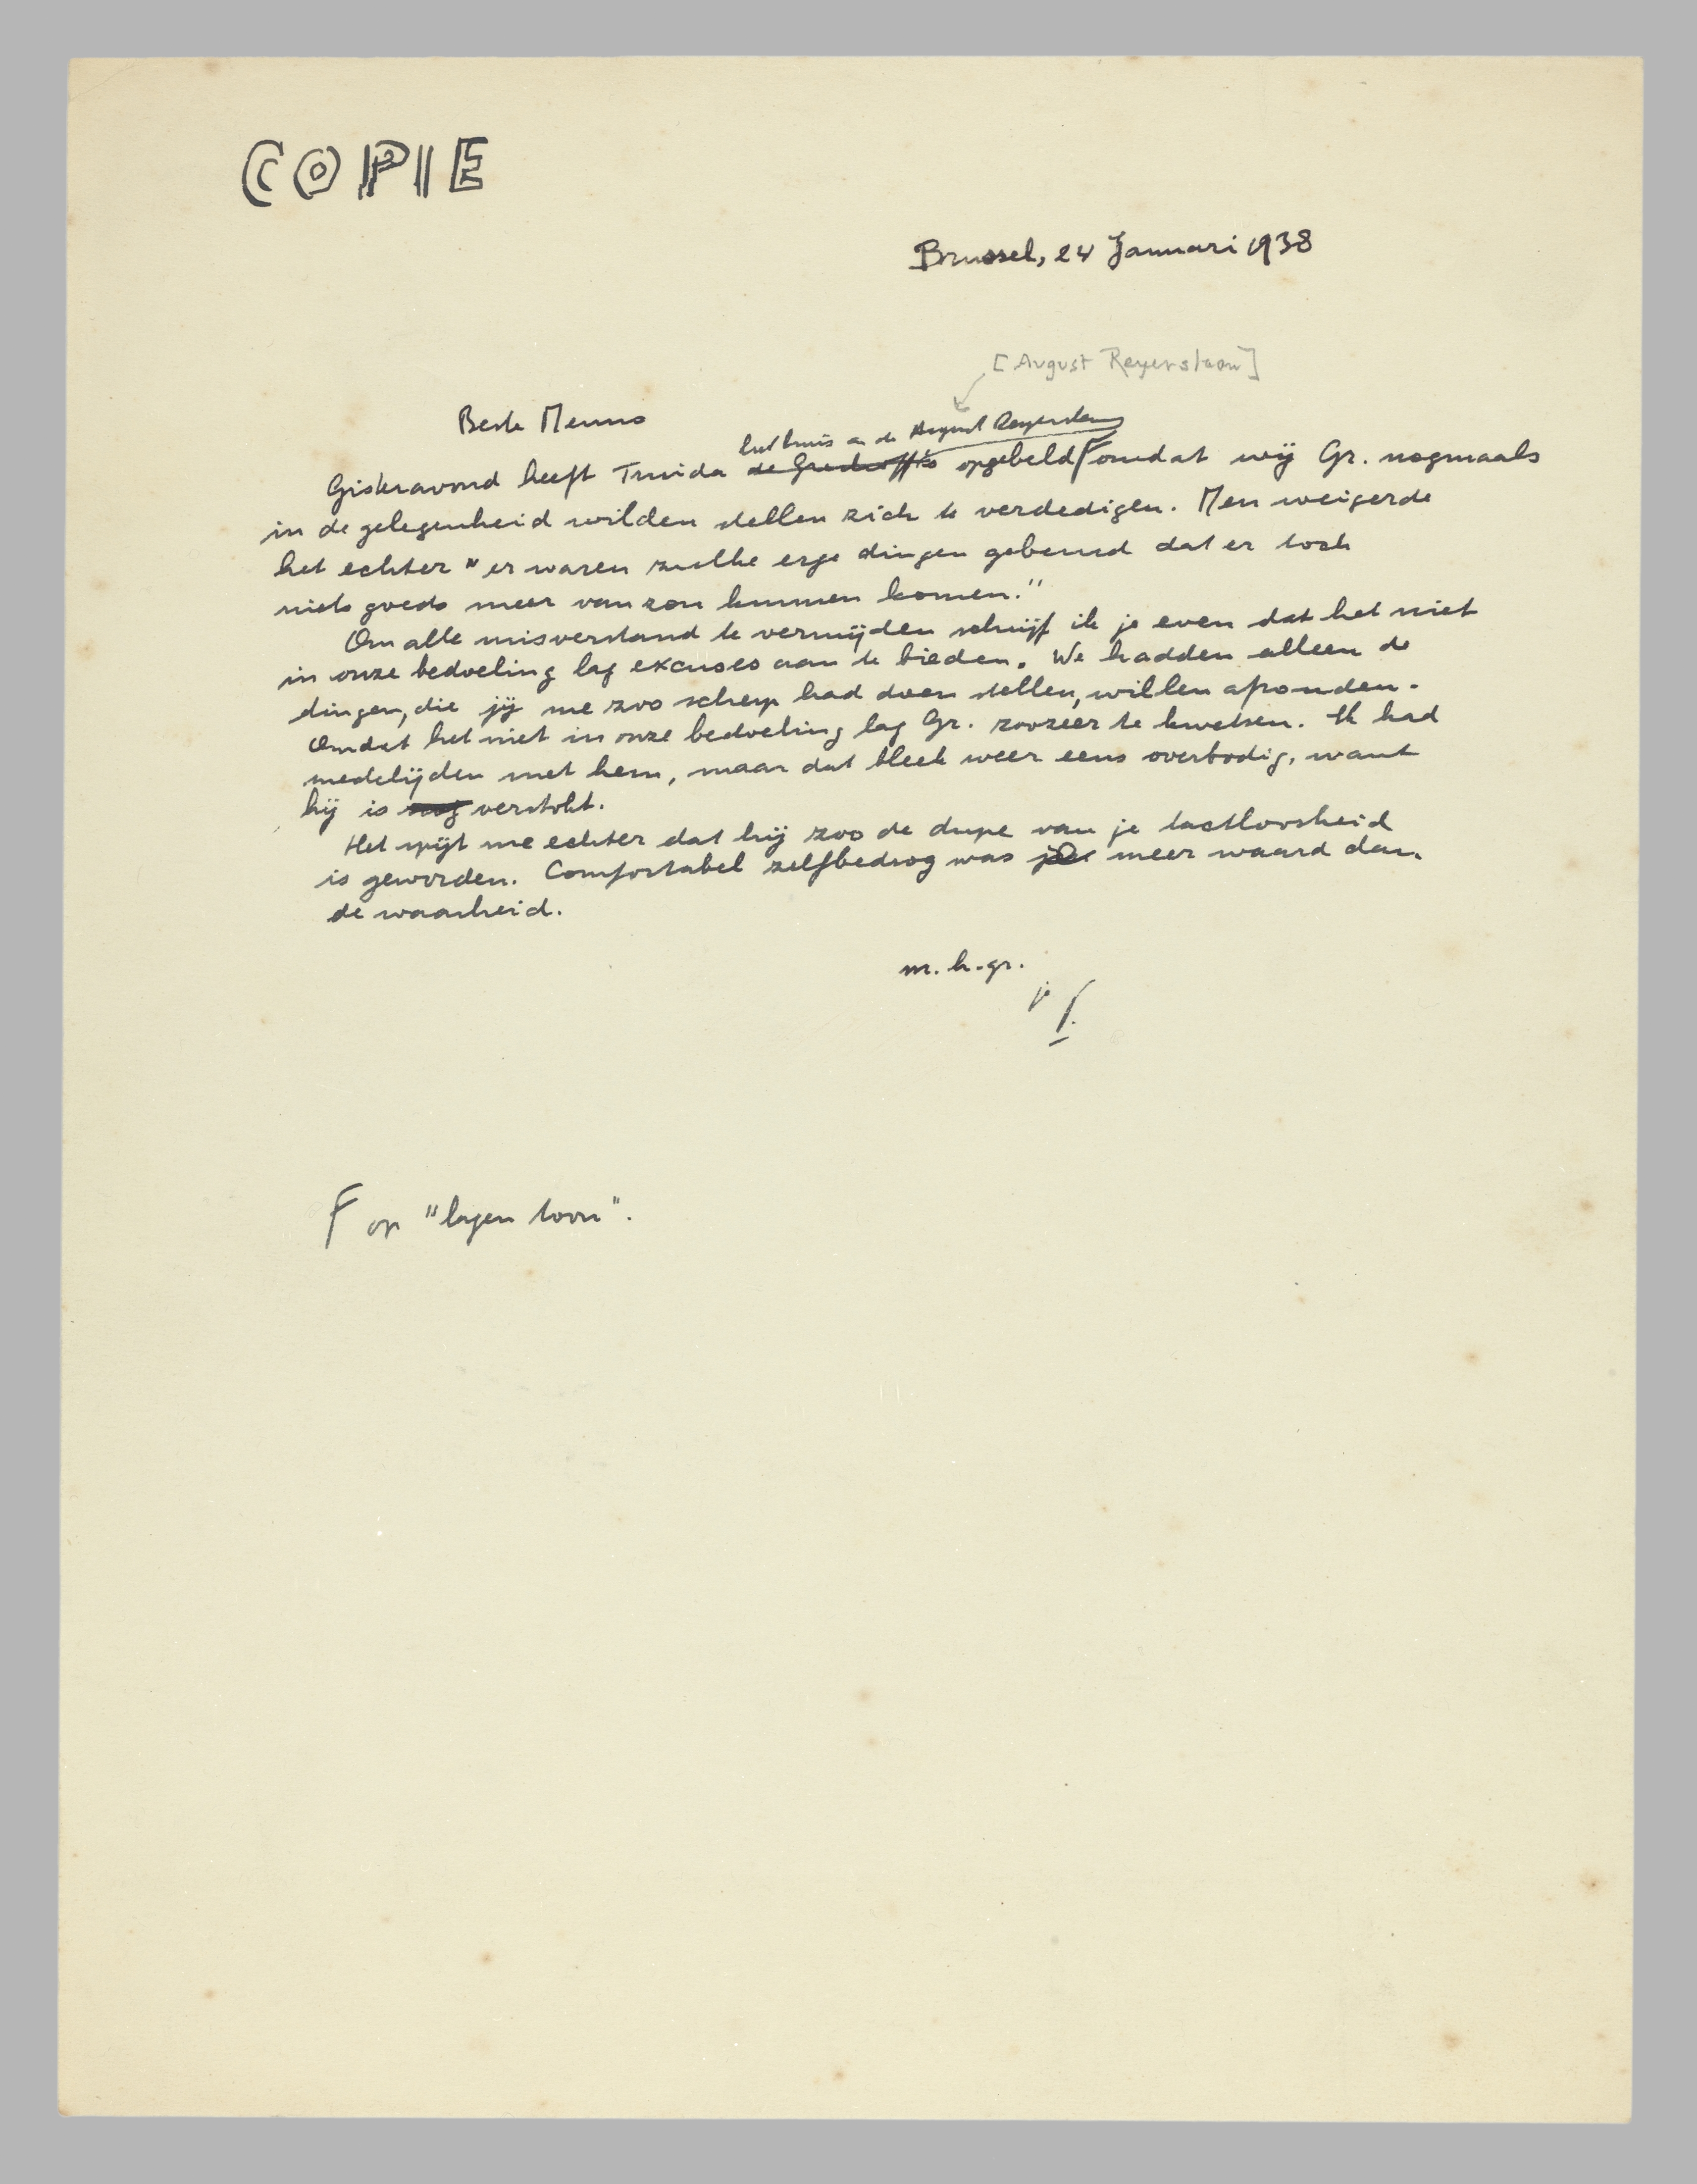 COPIE
Brussel, 24 Januari 1938
[August Reyerslaan]
Beste Menno
het huis in de August Reyerslaan
Gisteravond heeft Truida opgebeld omdat wij Gr. nogmaals
in de gelegenheid wilden stellen zich te verdedigen. Men weigerde
het echter "er waren zulke erge dingen gebeurd dat er toch
niets goeds meer van zou kunnen komen."
Om alle misverstand te vermijden schrijf ik je even dat het niet
in onze bedoeling lag excuses aan te bieden. We hadden alleen de
dingen, die jij me zoo scherp had doen stellen, willen afronden.
Omdat het niet in onze bedoeling lag Gr. zoozeer te kwetsen. Ik had
medelijden met hem, maar dat bleek weer eens overbodig, want
hij is nog verstokt.
Het spijt me echter dat hij zoo de dupe van je tactloosheid
is geworden. Comfortabel zelfbedrog was meer waard dan
de waarheid.
m. h. gr.
je
op "lagen toon".